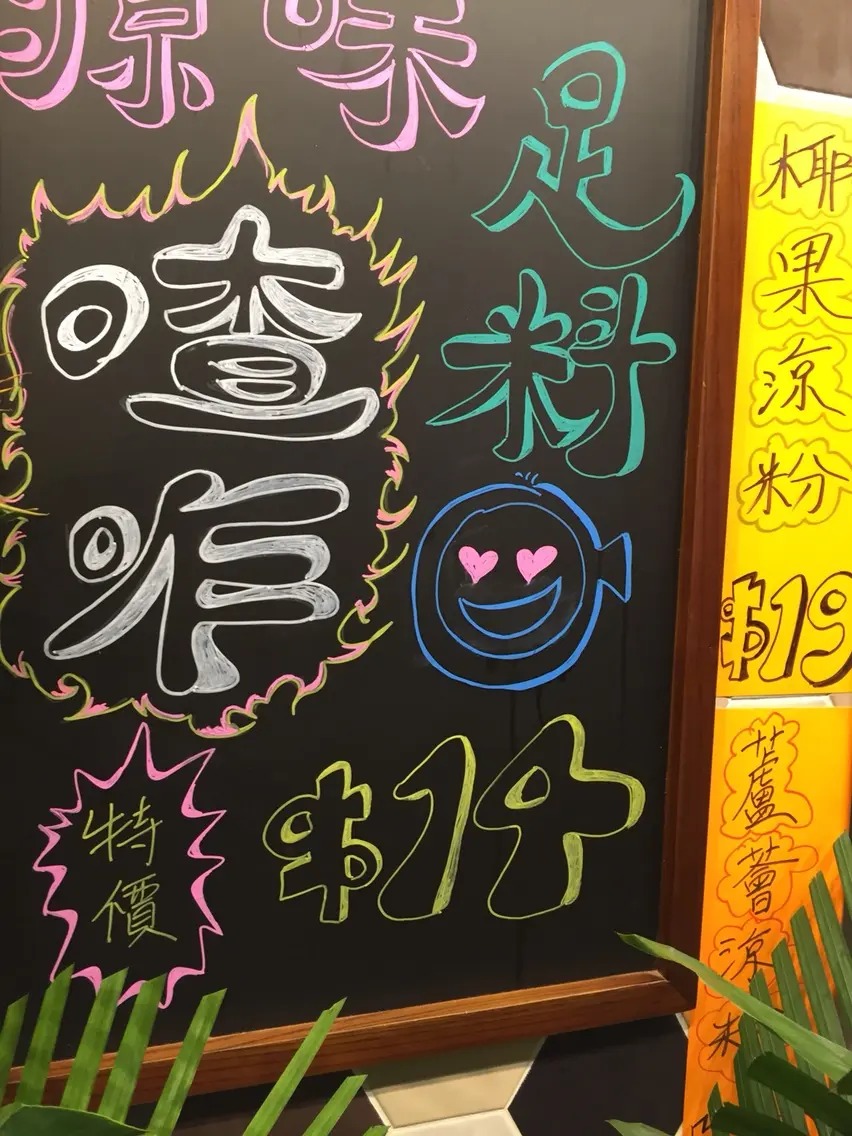 原味
足料
喳咋
特價
$14
椰果涼粉
$19
蘆薈涼